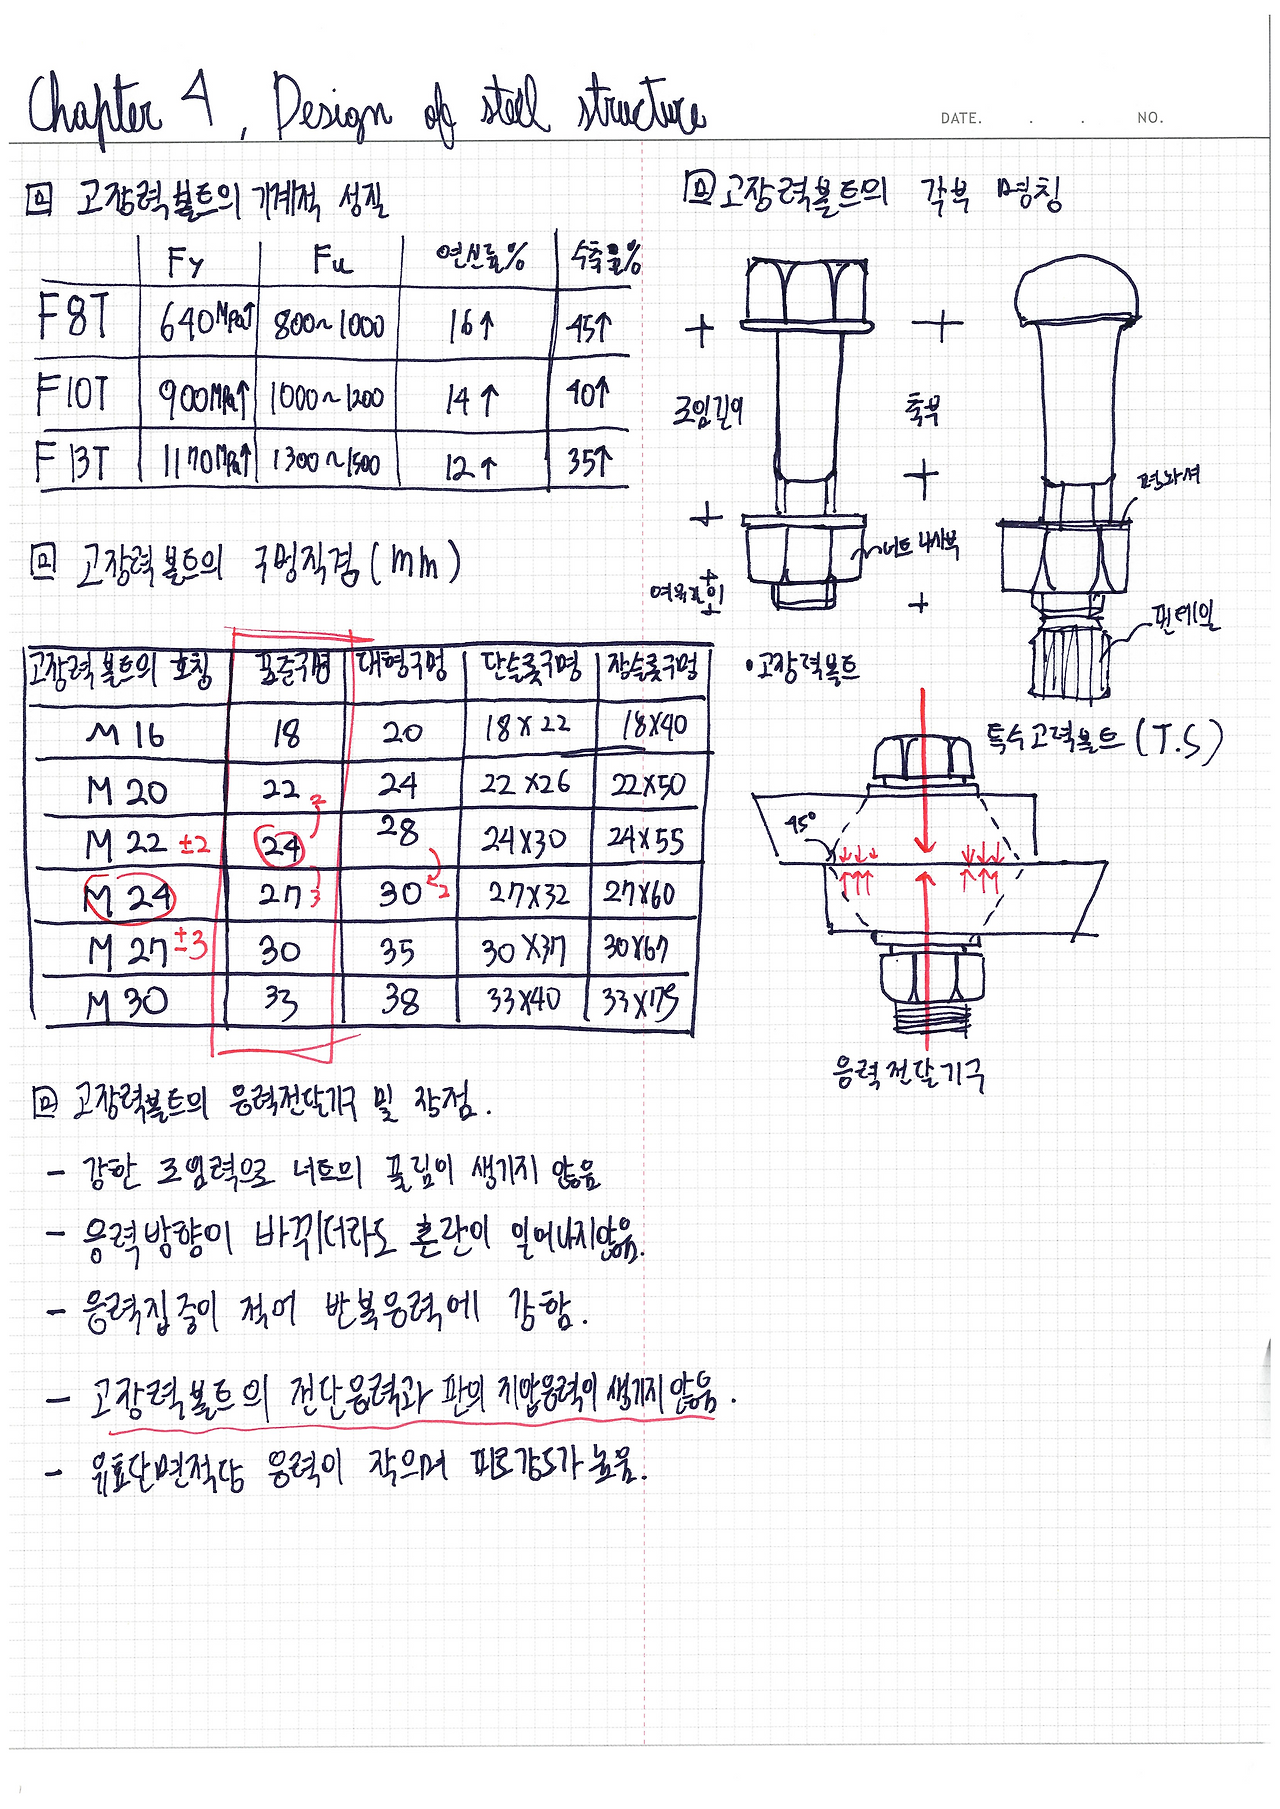 Chapter 4. Design of steel structure
DATE. . . NO.
고장력볼트의 기계적 성질
Fy Fu 연신율% 수축율%
F8T 640MPa↑ 800~1000 16↑ 45↑
F10T 900MPa↑ 1000~1200 14↑ 40↑
F13T 1170MPa↑ 1300~1500 12↑ 35↑
고장력볼트의 구멍직경(mm)
고장력볼트의 호칭 표준구멍 대형구멍 단슬롯구멍 장슬롯구멍
M16 18 20 18X22 18X40
M20 22 24 22X26 22X50
2
M22 ±2 24 28 24X30 24X55
M24 27 3 30 2 27X32 27X60
M27 ±3 30 35 30X37 30X67
M30 33 38 33X40 33X75
고장력볼트의 응력전달기구 및 장점.
- 강한 조임력으로 너트의 풀림이 생기지 않음
- 응력방향이 바뀌더라도 혼란이 일어나지않음.
- 응력집중이 적어 반복응력에 강함.
- 고장력볼트의 전단응력과 판의 지압응력이 생기지 않음.
- 유효단면적당 응력이 작으며 피로강도가 높음.
고장력볼트의 각부 명칭
조임길이
축부
평와셔
너트 나사부
여유길이
핀테일
•고장력볼트
특수고력볼트(T.S)
45°
응력전달기구